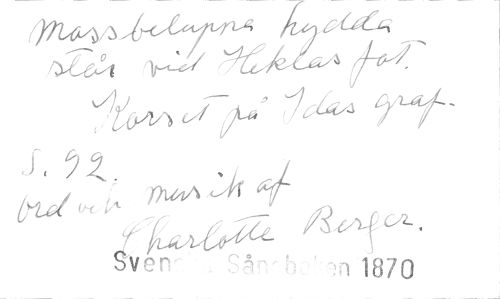 Mossbelupna hydda
står vid Heklas fot.
Korset på Idas graf.
S. 92.
Ord och musik af
Charlotte Berger.
Svenska Sångboken 1870